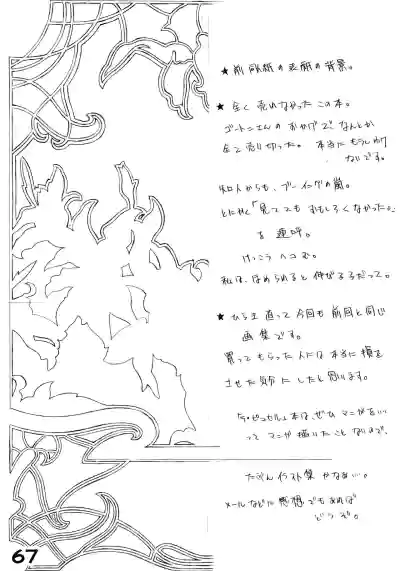 ★前回の表紙の背景。
★全く売れなかったこの本。
ゴートンさんのおかげで、なんとか
全て売り切った。本当にもうしわけ
ないです。
知人からも、ブーイングの嵐。
とにかく「見てておもしろくなかった。」
を連呼。
けっこうヘコむ。
私は、ほめられると伸びる子だって。
★ひらき直って今回も前回と同じ
画集です。
買ってもらった人には本当に損を
させた気分にしたと思います。
本は、ぜひマンガを
ってマンガ描いたことないので、
たぶんイラスト集かなぁ…。
メールなどに感想でもあれば
どうぞ。
67